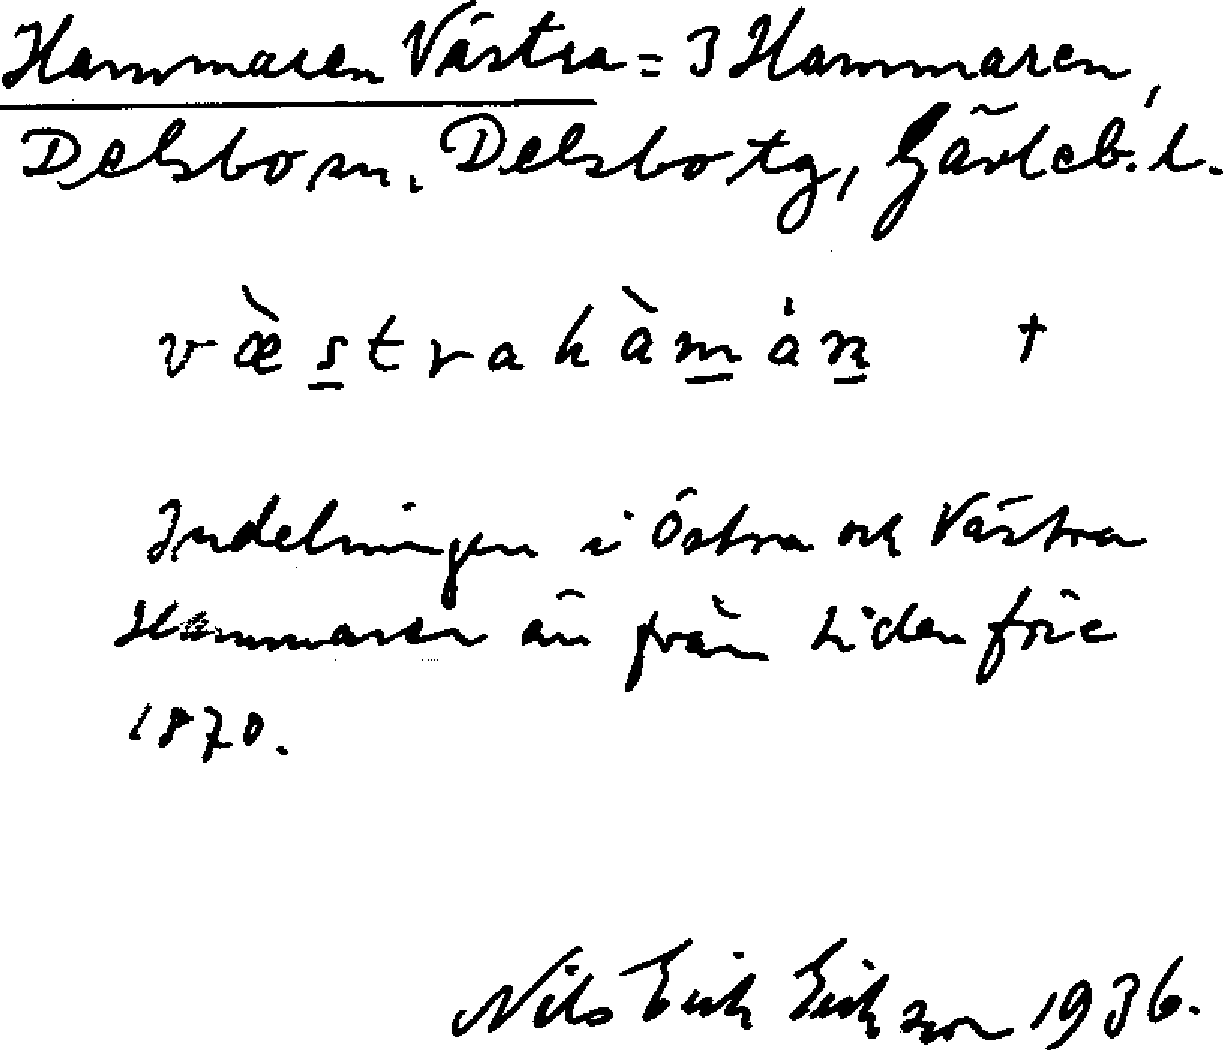 Hammaren Västra = 3 Hammaren,
Delsbo sn. Delsbo tg, Gävleb. l.
væ̀strahàmȧn †
Indelningen i Östra och Västra
Hammaren är från tiden före
1870.
Nils Erik Erikson 1936.